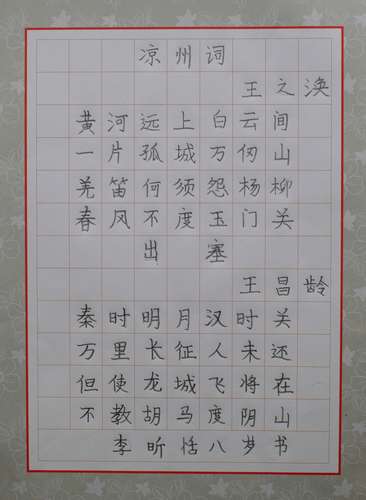 凉州词
王之涣
黄河远上白云间
一片孤城万仞山
羌笛何须怨杨柳
春风不度玉门关
出塞
王昌龄
秦时明月汉时关
万里长征人未还
但使龙城飞将在
不教胡马度阴山
李昕恬八岁书